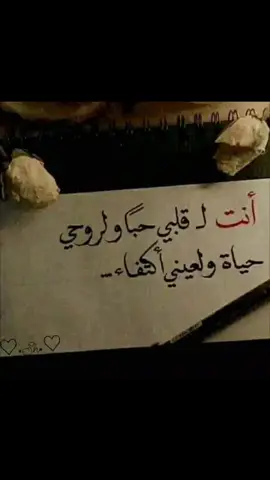 أنت لـ قلبي حبًا ولروحي
حياة ولعيني أكتفاء...